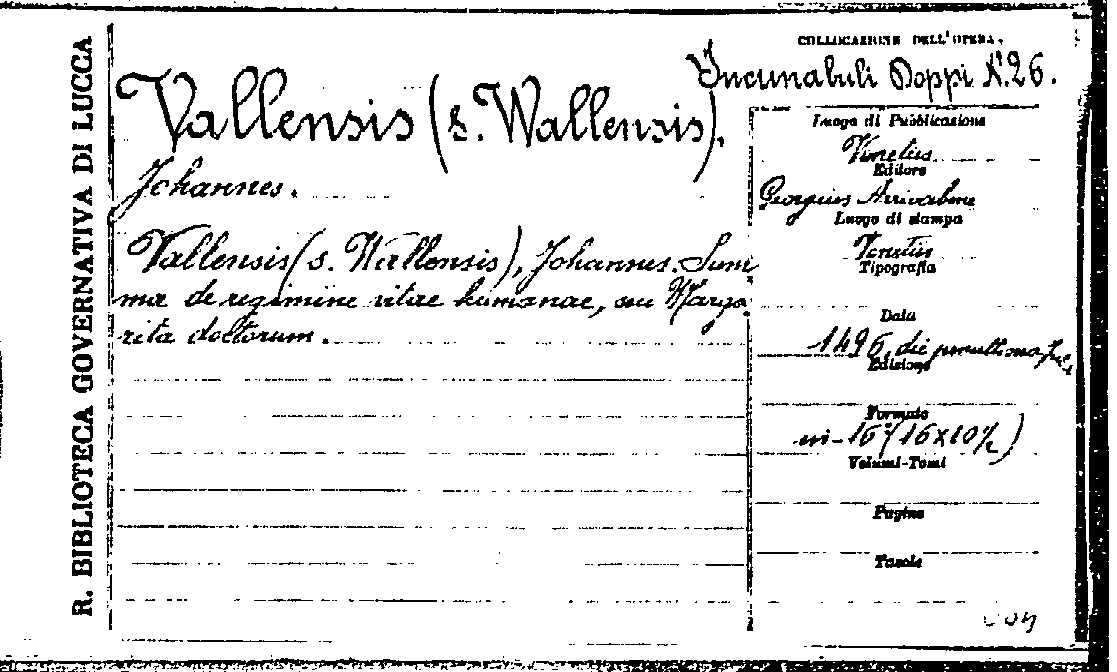 R. BIBLIOTECA GOVERNATIVA DI LUCCA
COLLOCAZIONE DELL'OPERA.
Incunabuli Doppi N.26.
Vallensis (s. Wallensis),
Johannes.
Vallensis (s. Wallensis), Johannes. Sum
ma de regimine vitae humanae, seu Marga
rita doctorum.
Luogo di Pubblicazione
Venetiis
Editore
Georgius Arrivabene
Luogo di stampa
Venetiis
Tipografia
Data
1496, die penultima
Edizione
Formato
in-16° (16x10½)
Volumi-Tomi
Pagine
Tavole